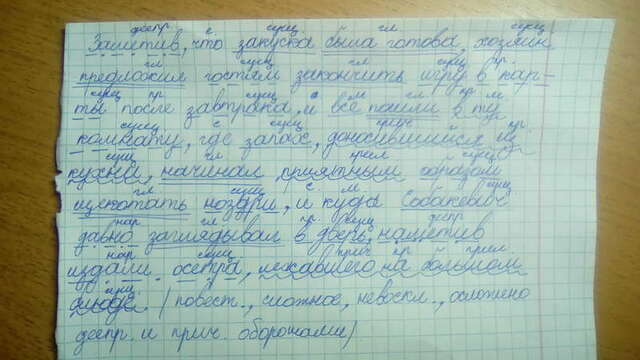 деепр. с сущ гл сущ
Заметив, что закуска была готова, хозяин
гл сущ гл сущ пр.
предложил гостям закончить игру в кар-
сущ пр сущ с м гл пр м.
ты после завтрака, и все пошли в ту
сущ с сущ прич пр.
комнату, где запах, доносившийся из
сущ гл прил сущ
кухни, начинал приятным образом
гл сущ с м сущ
щекотать ноздри, и куда Собакевич
нар гл пр сущ деепр
давно заглядывал в дверь, наметив
нар сущ прич пр прил.
издали осетра, лежавшего на большом
сущ
блюде (повест., сложное, невоскл., осложнено
деепр. и прич. оборотами)